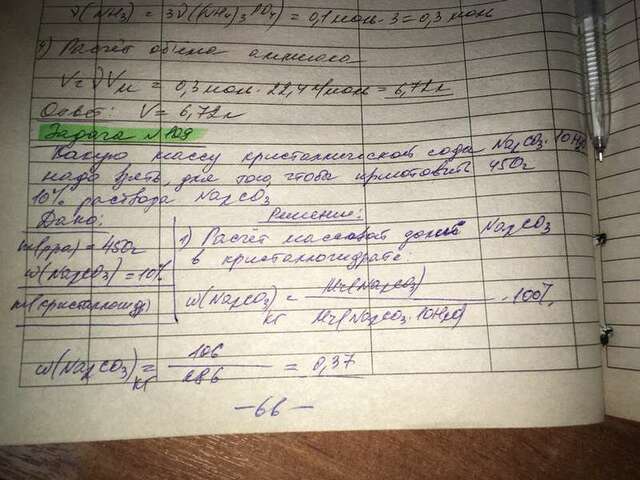 ν(NH₃) = 3ν((NH₄)₃PO₄) = 0,1 моль · 3 = 0,3 моль
4) Расчёт объёма аммиака
V = νVм = 0,3 моль · 22,4 л/моль = 6,72 л
Ответ: V = 6,72 л
Задача №109
Какую массу кристаллической соды Na₂CO₃ · 10H₂O
надо взять, для того, чтобы приготовить 450г
10% раствора Na₂CO₃
Дано:
m(р-ра) = 450г
ω(Na₂CO₃) = 10%
m(кристаллогидр)
Решение:
1) Расчёт массовой доли Na₂CO₃
в кристаллогидрате:
ω(Na₂CO₃)кг = Mr(Na₂CO₃) / Mr(Na₂CO₃ · 10H₂O) · 100%
ω(Na₂CO₃)кг = 106 / 286 = 0,37
—66—